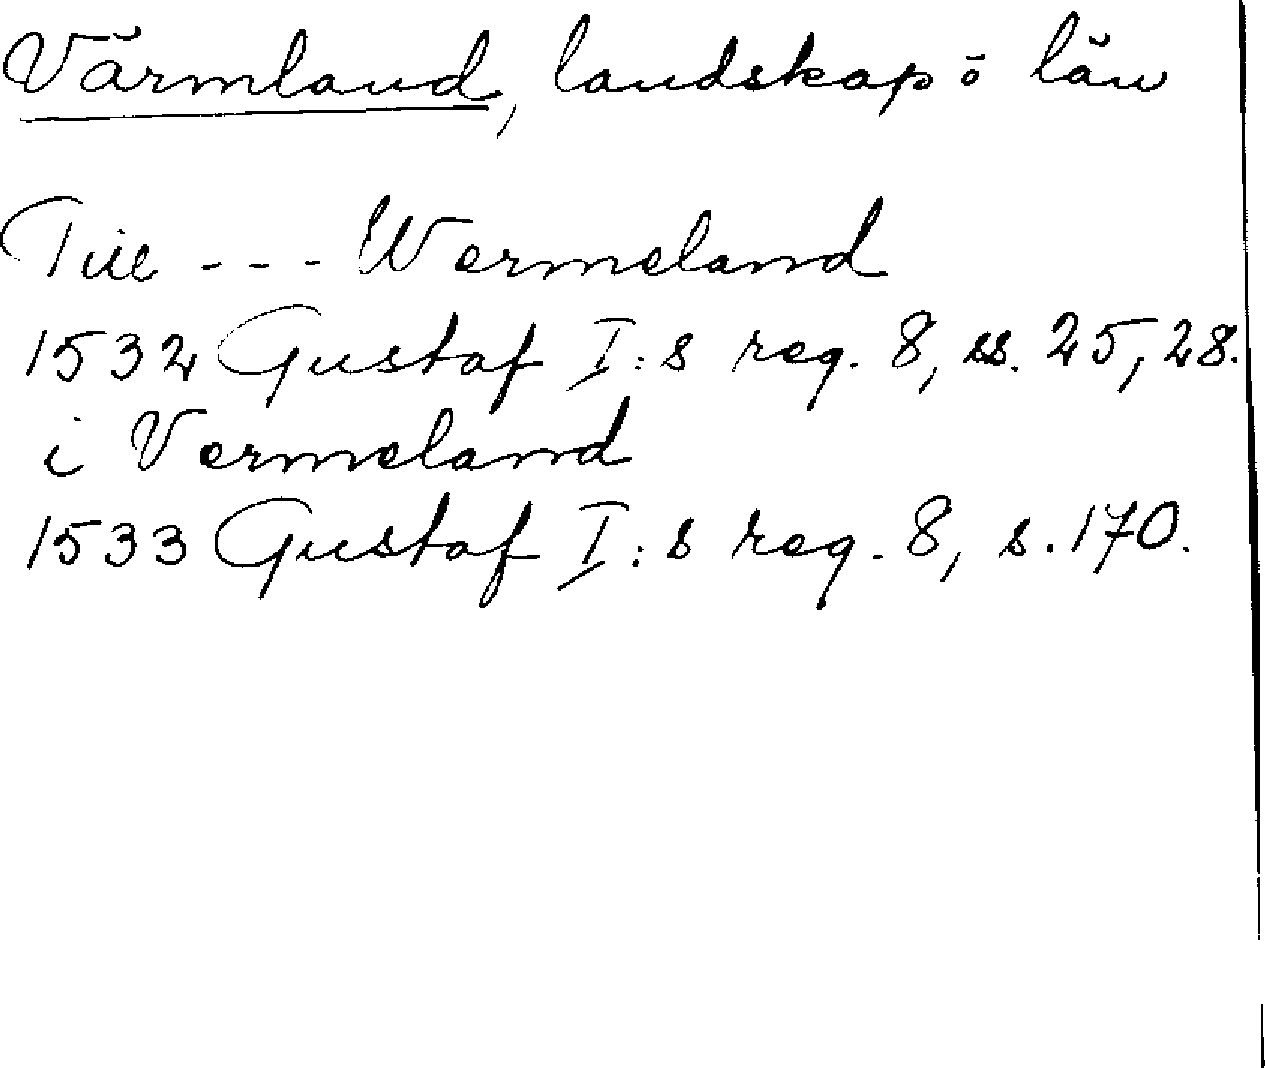 Värmland, landskap o län
Till - - - Wermeland
1532 Gustaf I:s reg. 8, ss. 25, 28.
i Vermeland
1533 Gustaf I:s reg. 8, s. 170.